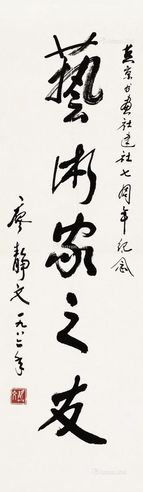 京东书画社建社七周年纪念
藝術家之友
廖静文 一九八二年